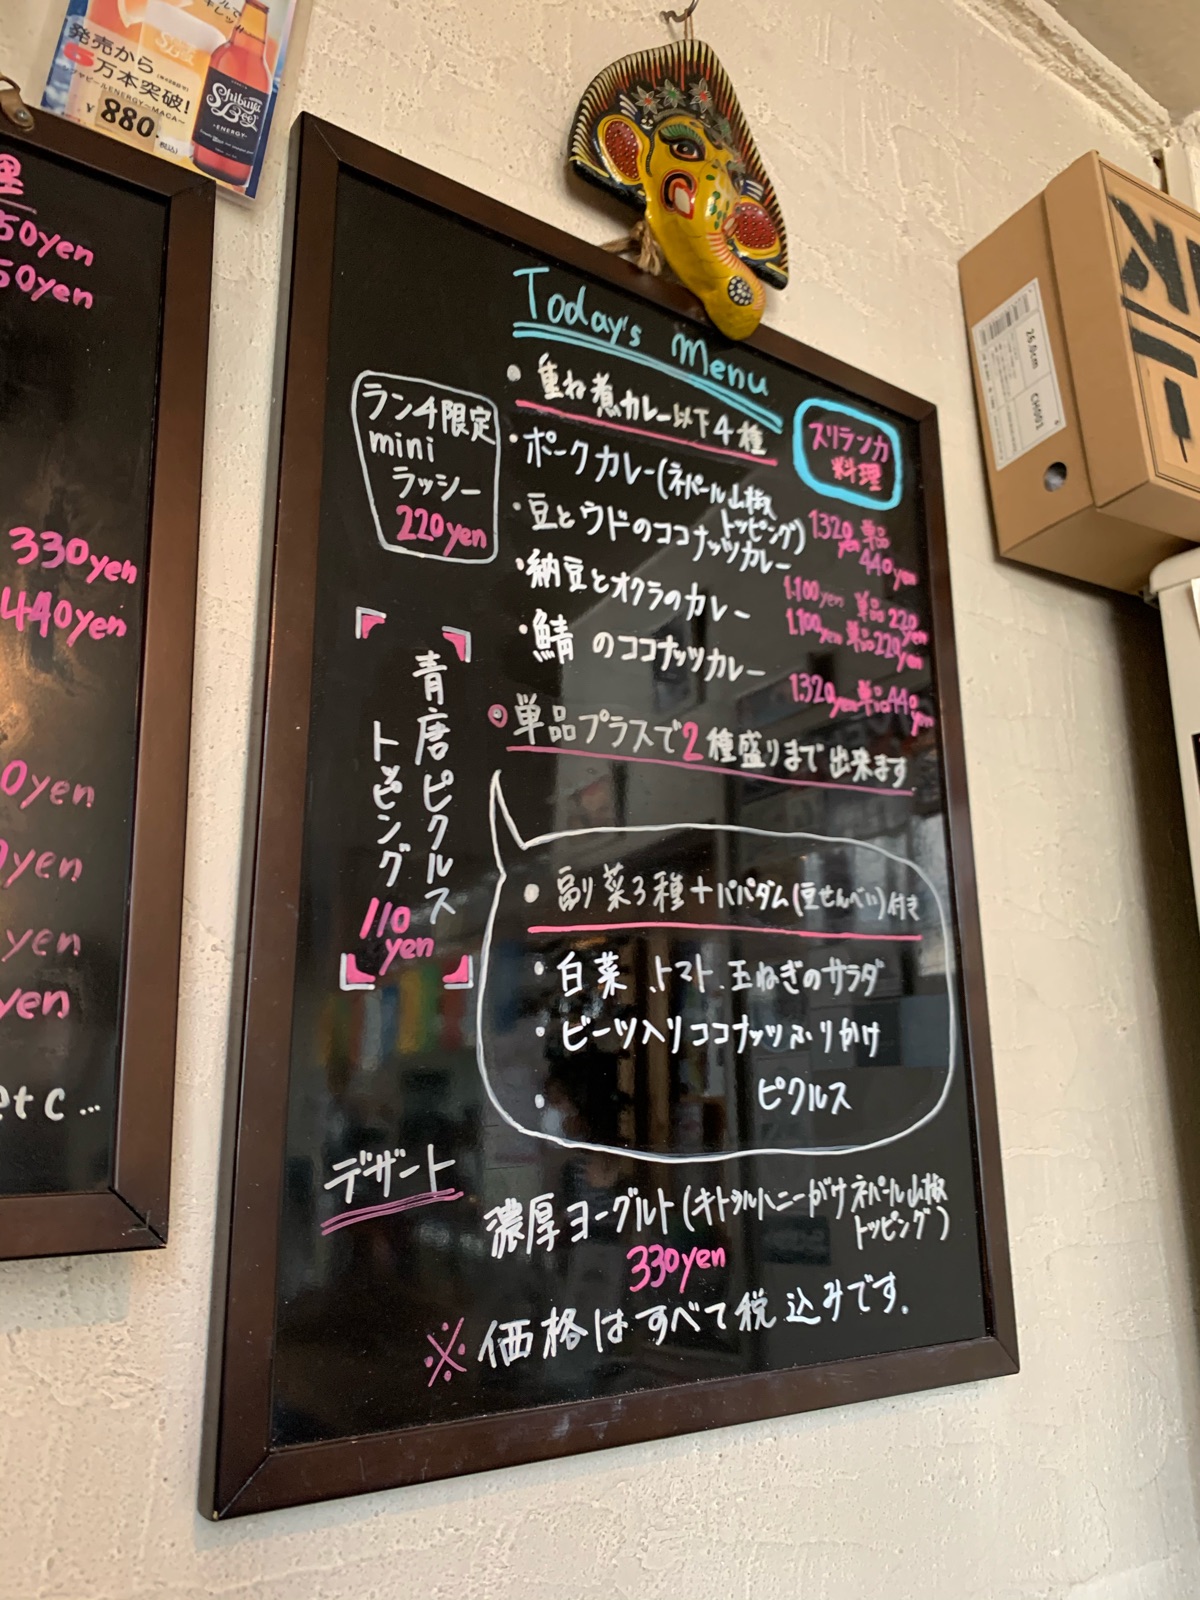 発売から
5万本突破!
¥880.
(税込)
Shibuya
Beer
ENERGY
50yen
50yen
330yen
440yen
0yen
0yen
yen
yen
etc...
Today's Menu
・重ね煮カレー以下4種
スリランカ
料理
・ポークカレー(ネパール山椒
トッピング)
1.320yen 単品
440yen
・豆とウドのココナッツカレー
1.100yen 単品220yen
・納豆とオクラのカレー
1.100yen 単品220yen
・鯖のココナッツカレー
1.320yen 単品440yen
単品プラスで2種盛りまで出来ます.
・副菜3種+パパダム(豆せんべい)付き
・白菜、トマト、玉ねぎのサラダ
・ビーツ入りココナッツふりかけ
・ ピクルス
ランチ限定
mini
ラッシー
220yen
青唐ピクルス
トッピング
110
yen
デザート
濃厚ヨーグルト(キトゥルハニーがけネパール山椒
トッピング)
330yen
※価格はすべて税込みです.
26.0cm
CH001